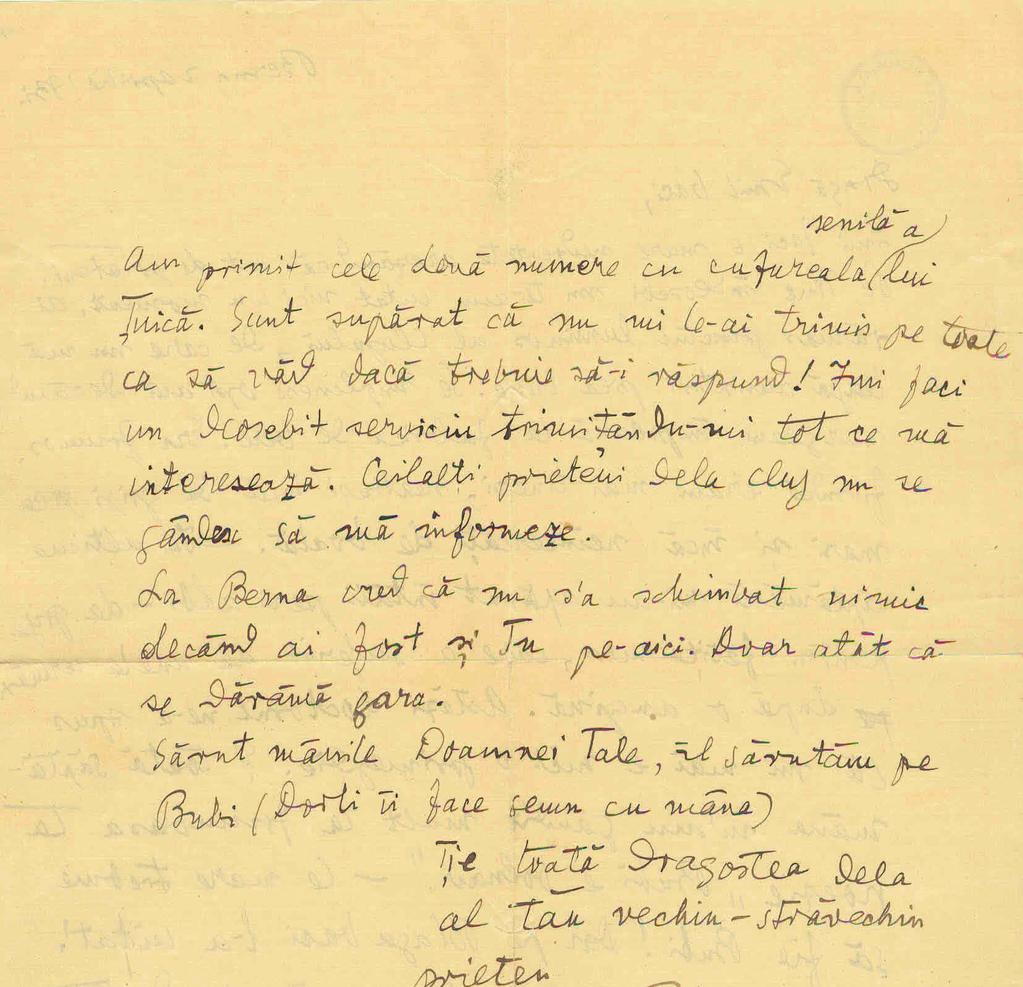 senilă a
Am primit cele două numere cu cufureala (lui
Țuică. Sunt supărat că nu mi le-ai trimis pe toate
ca să văd dacă trebuie să-i răspund! Imi faci
un deosebit serviciu trimitându-mi tot ce mă
interesează. Ceilalți prieteni dela Cluj nu se
gândesc să mă informeze.
La Berna cred că nu s'a schimbat nimic
decând ai fost și Tu pe-aici. Doar atât că
se dărâmă gara.
Sărut mâinile Doamnei Tale, îl sărutăm pe
Bubi (Dorli îi face semn cu mâna)
Ție toată dragostea dela
al tău vechiu-străvechiu
prieten